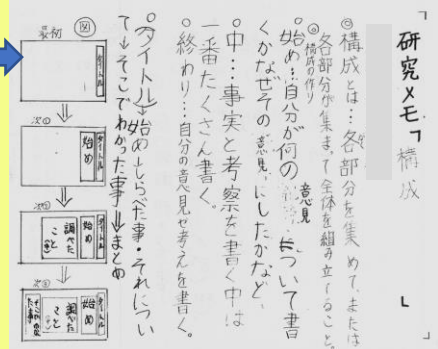 「研究メモ「構成」
構成とは…各部分を集めて、または
各部分が集まって全体を組み立てること。
構成の作り
始め…自分が何の意見について書
くかなぜその意見にしたかなど、
中…事実と考察を書く中は
一番たくさん書く。
終わり…自分の意見や考えを書く。
タイトル→始め→しらべた事・それについ
て→そこでわかった事→まとめ
図
最初
タイトル
次
タイトル
始め
次
タイトル
始め
調べたこと
次
タイトル
始め
調べたこと